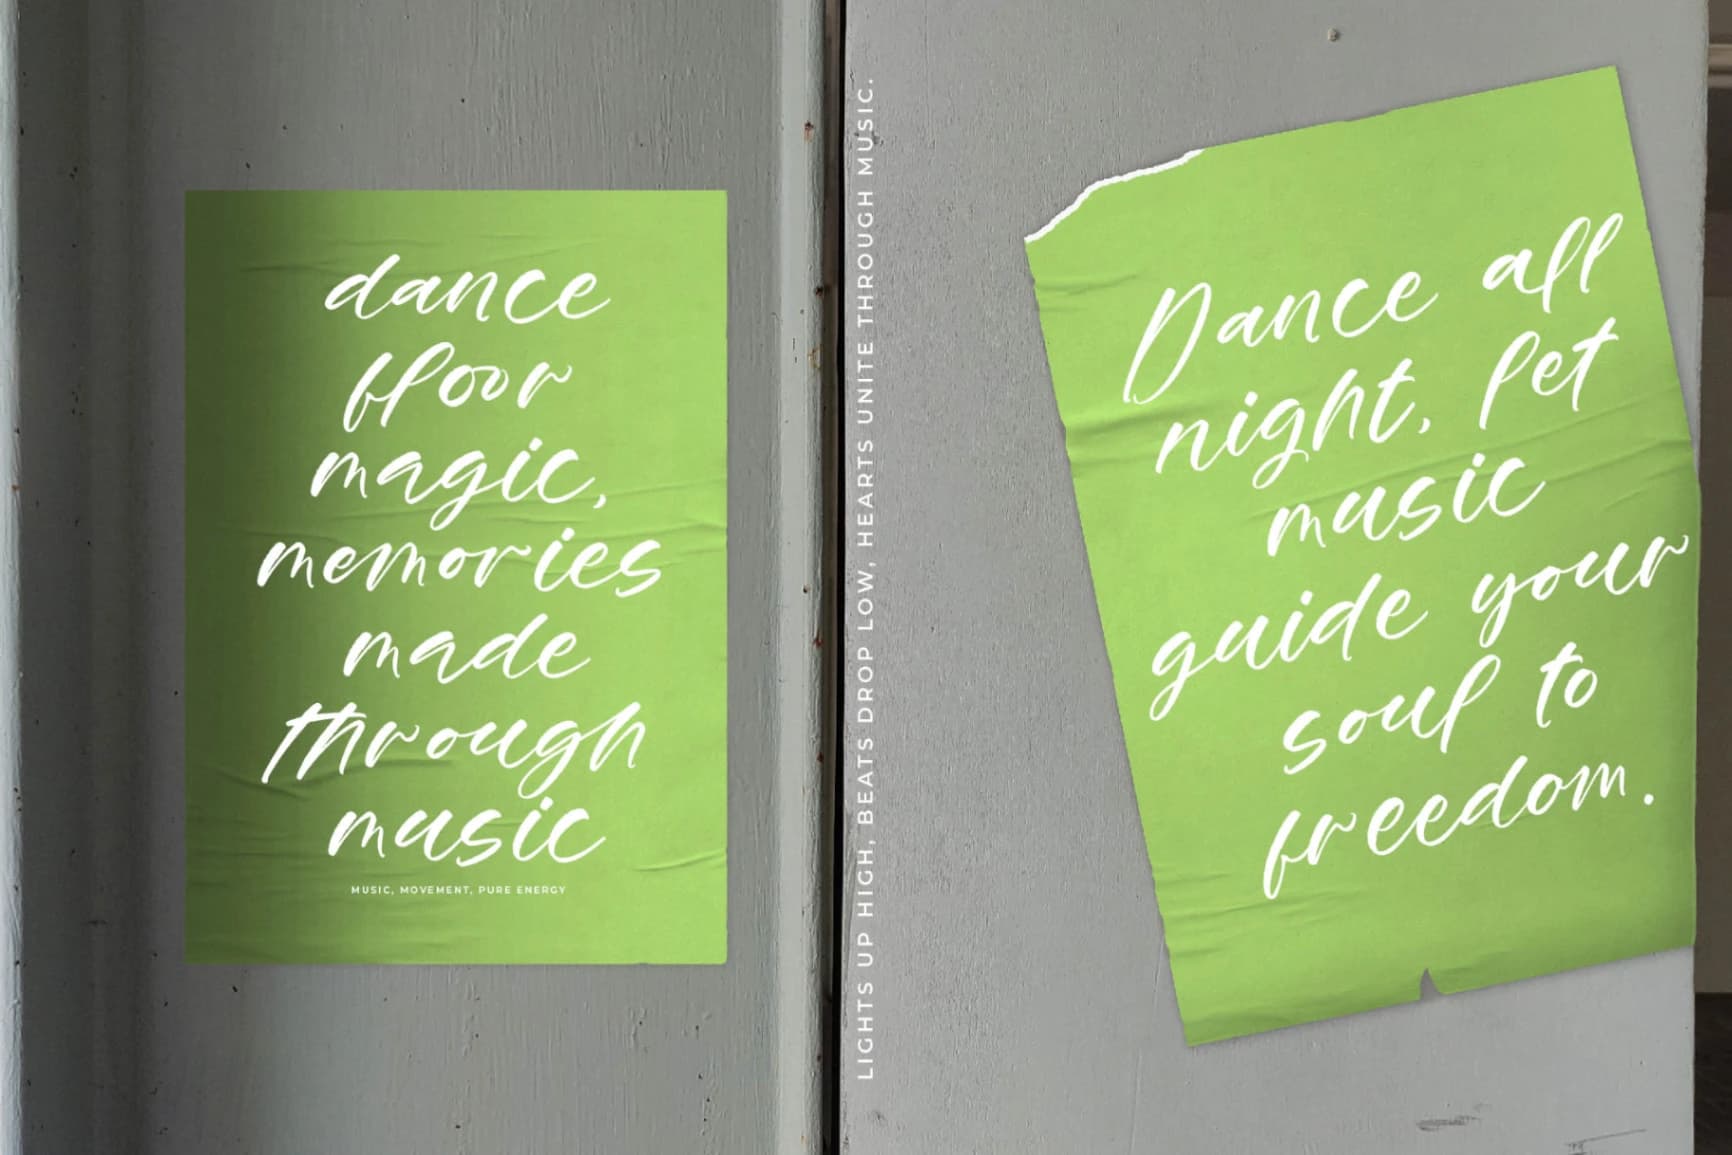 dance
floor
magic,
memories
made
through
music
MUSIC, MOVEMENT, PURE ENERGY
LIGHTS UP HIGH, BEATS DROP LOW, HEARTS UNITE THROUGH MUSIC.
Dance all
night, let
music
guide your
soul to
freedom.